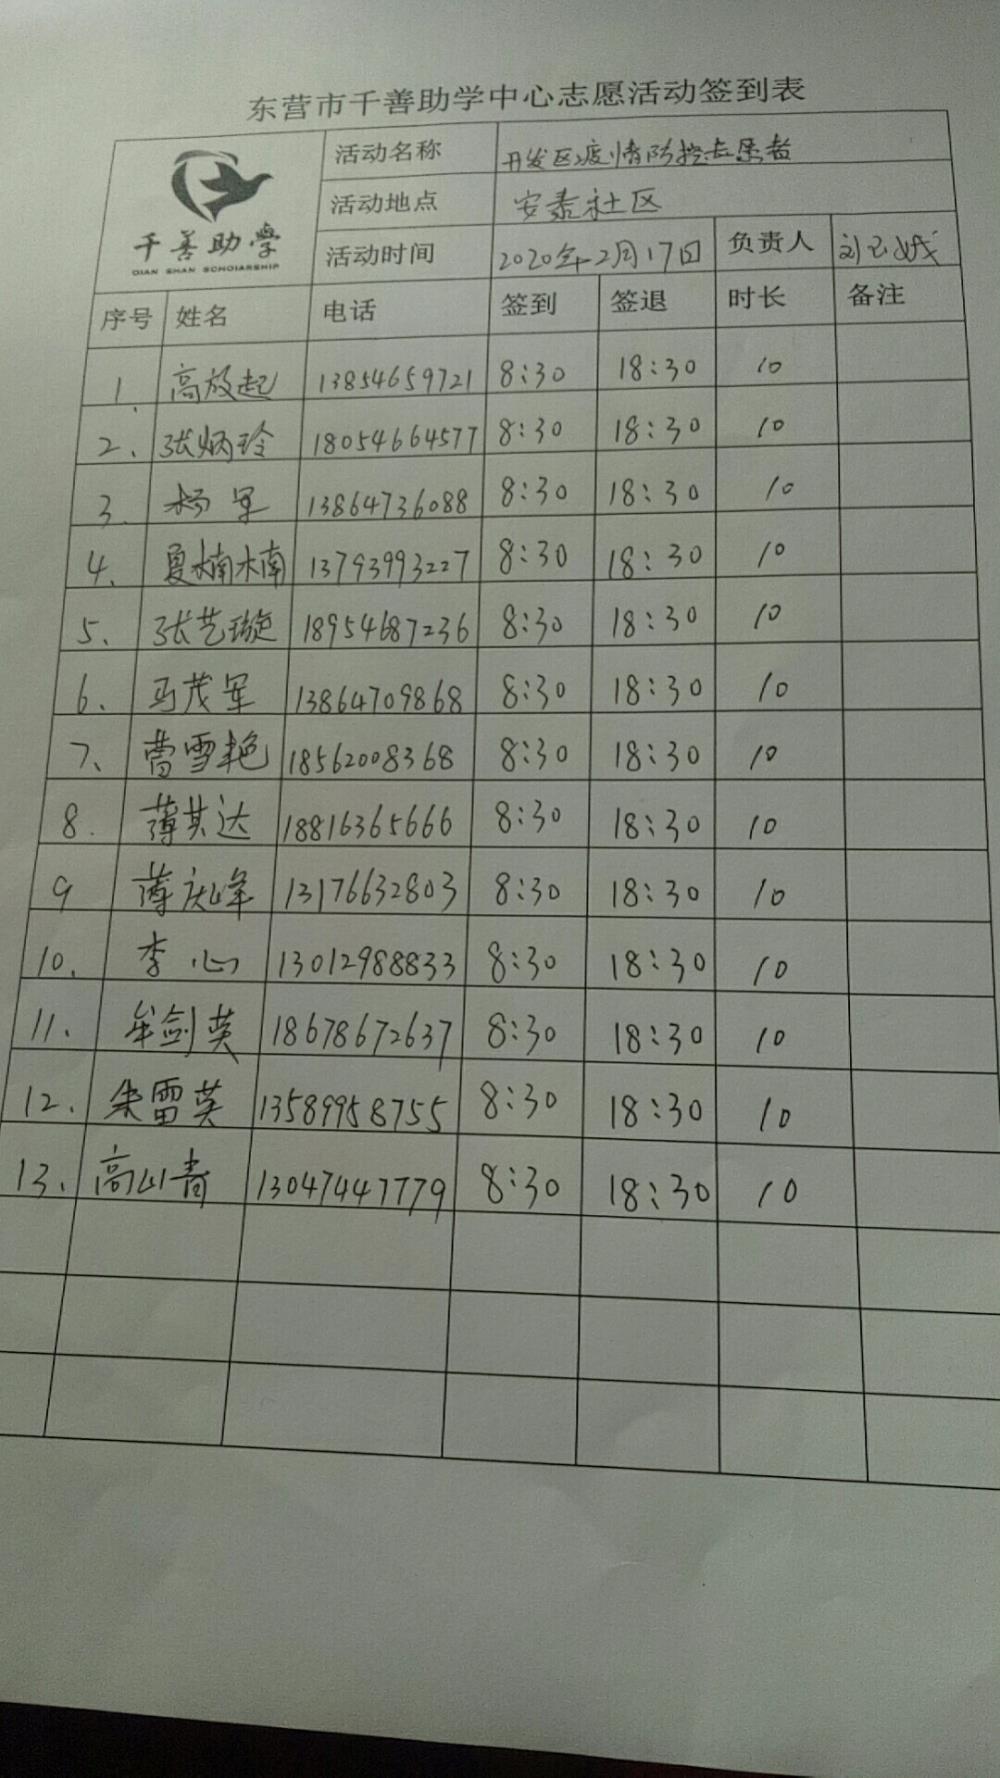 东营市千善助学中心志愿活动签到表
千善助学
QIAN SHAN SCHOLARSHIP
活动名称 开发区疫情防控志愿者
活动地点 安泰社区
活动时间 2020年2月17日 负责人
序号 姓名 电话 签到 签退 时长 备注
1. 高放起 13854659721 8:30 18:30 10
2. 张炳玲 18054664577 8:30 18:30 10
3. 杨军 13864736088 8:30 18:30 10
4. 夏楠楠 13793993227 8:30 18:30 10
5. 张艺璇 18954687236 8:30 18:30 10
6. 马茂军 13864709868 8:30 18:30 10
7. 曹雪艳 18562008368 8:30 18:30 10
8. 薄其达 18816365666 8:30 18:30 10
9 薄庆峰 13176632803 8:30 18:30 10
10. 李心 13012988833 8:30 18:30 10
11. 牟剑英 18678672637 8:30 18:30 10
12. 朱雷英 13589958755 8:30 18:30 10
13. 高山青 13047447779 8:30 18:30 10